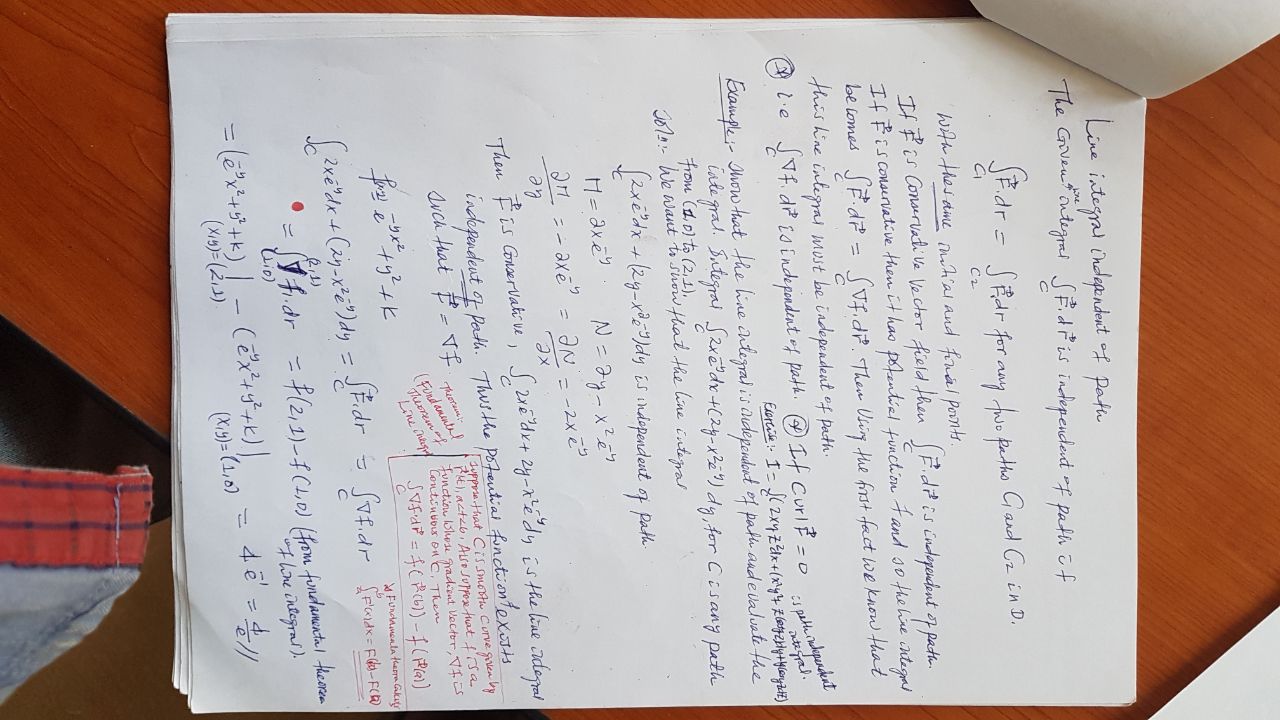 Line integral independent of path
The Given line integral ∫_C F⃗.dr⃗ is independent of path if
∫_{C1} F⃗.dr = ∫_{C2} F⃗.dr for any two paths C1 and C2 in D.
With the same initial and final points.
If F⃗ is conservative vector field then ∫_C F⃗.dr⃗ is independent of path
If F⃗ is conservative then it has potential function f and so the line integral
becomes ∫_C F⃗.dr⃗ = ∫_C ∇f.dr⃗. Then Using the first fact we know that
this line integral must be independent of path.
i.e ∫_C ∇f.dr⃗ is independent of path. If Curl F⃗ = 0 is path independent integral.
Exercise:- I = ∫_C (2xyz²dx +
Example:- Show that the line integral is independent of path and evaluate the
integral. Integral ∫_C 2xe^-y dx + (2y-x²e^-y) dy, for C is any path
from (1,0) to (2,1).
Soln:- We want to show that the line integral
∫_C 2xe^-y dx + (2y-x²e^-y)dy is independent of path
M = 2xe^-y N = 2y - x²e^-y
∂M/∂y = -2xe^-y = ∂N/∂x = -2xe^-y
Then F⃗ is conservative, ∫_C 2xe^-y dx + 2y-x²e^-y dy is the line integral
independent of path. Thus the potential function f exists
Such that F⃗ = ∇f.
f = e^-y x² + y² + K
Theorem:- (Fundamental Theorem of Line integral)
Suppose that C is smooth curve given by
r⃗(t), a≤t≤b, Also suppose that f is a
function whose gradient vector, ∇f is
continuous on C, Then
∫_C ∇f.dr⃗ = f(r⃗(b)) - f(r⃗(a))
Fundamental theorem calculus
∫_a^b F'(x)dx = F(b)-F(a)
∫_C 2xe^-y dx + (2y-x²e^-y)dy = ∫_C F⃗.dr = ∫_C ∇f.dr
= ∫_(1,0)^(2,1) ∇f.dr = f(2,1) - f(1,0) (from fundamental theorem
of line integral).
= (e^-y x² + y² + K)|_(x,y)=(2,1) - (e^-y x² + y² + K)|_(x,y)=(1,0) = 4e^-1 = 4/e //